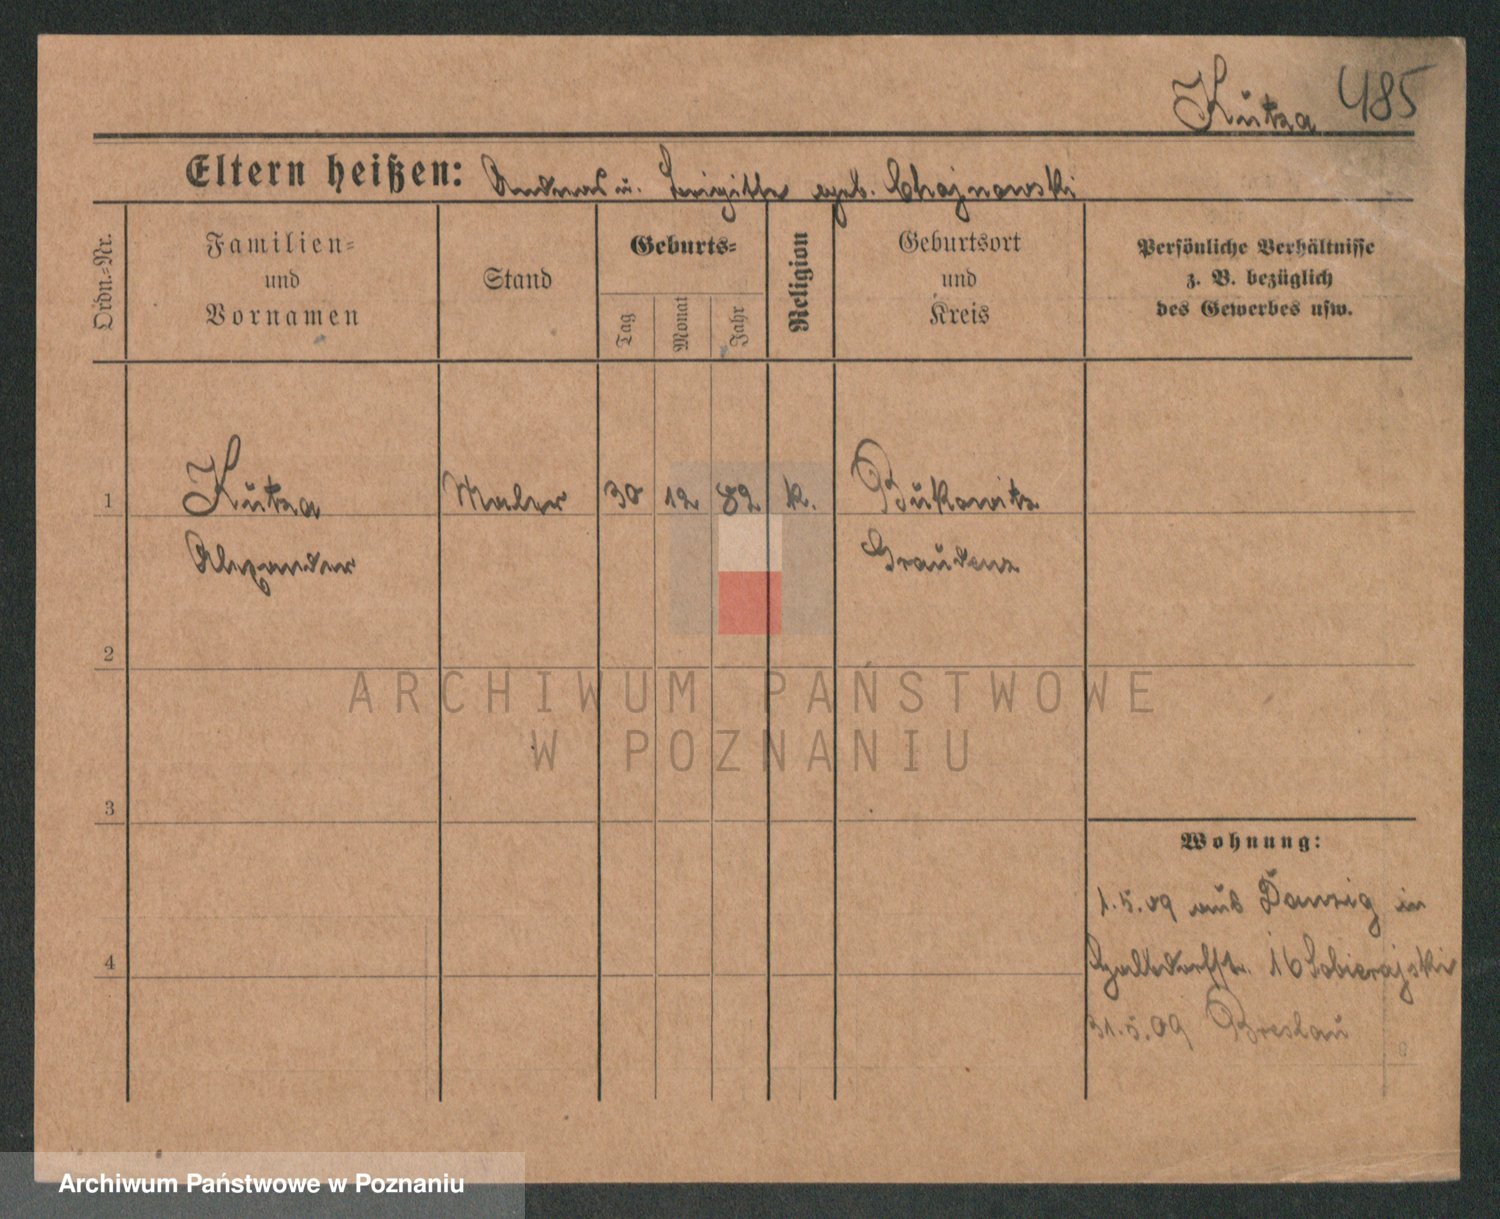 Kutza 485
Eltern heißen: Andreas u. Brigitte geb. Chojnowski
Ordn.-Nr.
Familien-
und
Vornamen
Stand
Geburts-
Tag
Monat
Jahr
Religion
Geburtsort
und
Kreis
Persönliche Verhältnisse
z. B. bezüglich
des Gewerbes usw.
1 Kutza Maler 30 12 82 k. Bukowitz
Alexander Graudenz
2
ARCHIWUM PAŃSTWOWE
W POZNANIU
3
Wohnung:
1.5.09 aus Danzig in
4 16 Sobierajski
31.5.09 Breslau
Archiwum Państwowe w Poznaniu